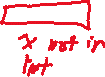 x not in
lst